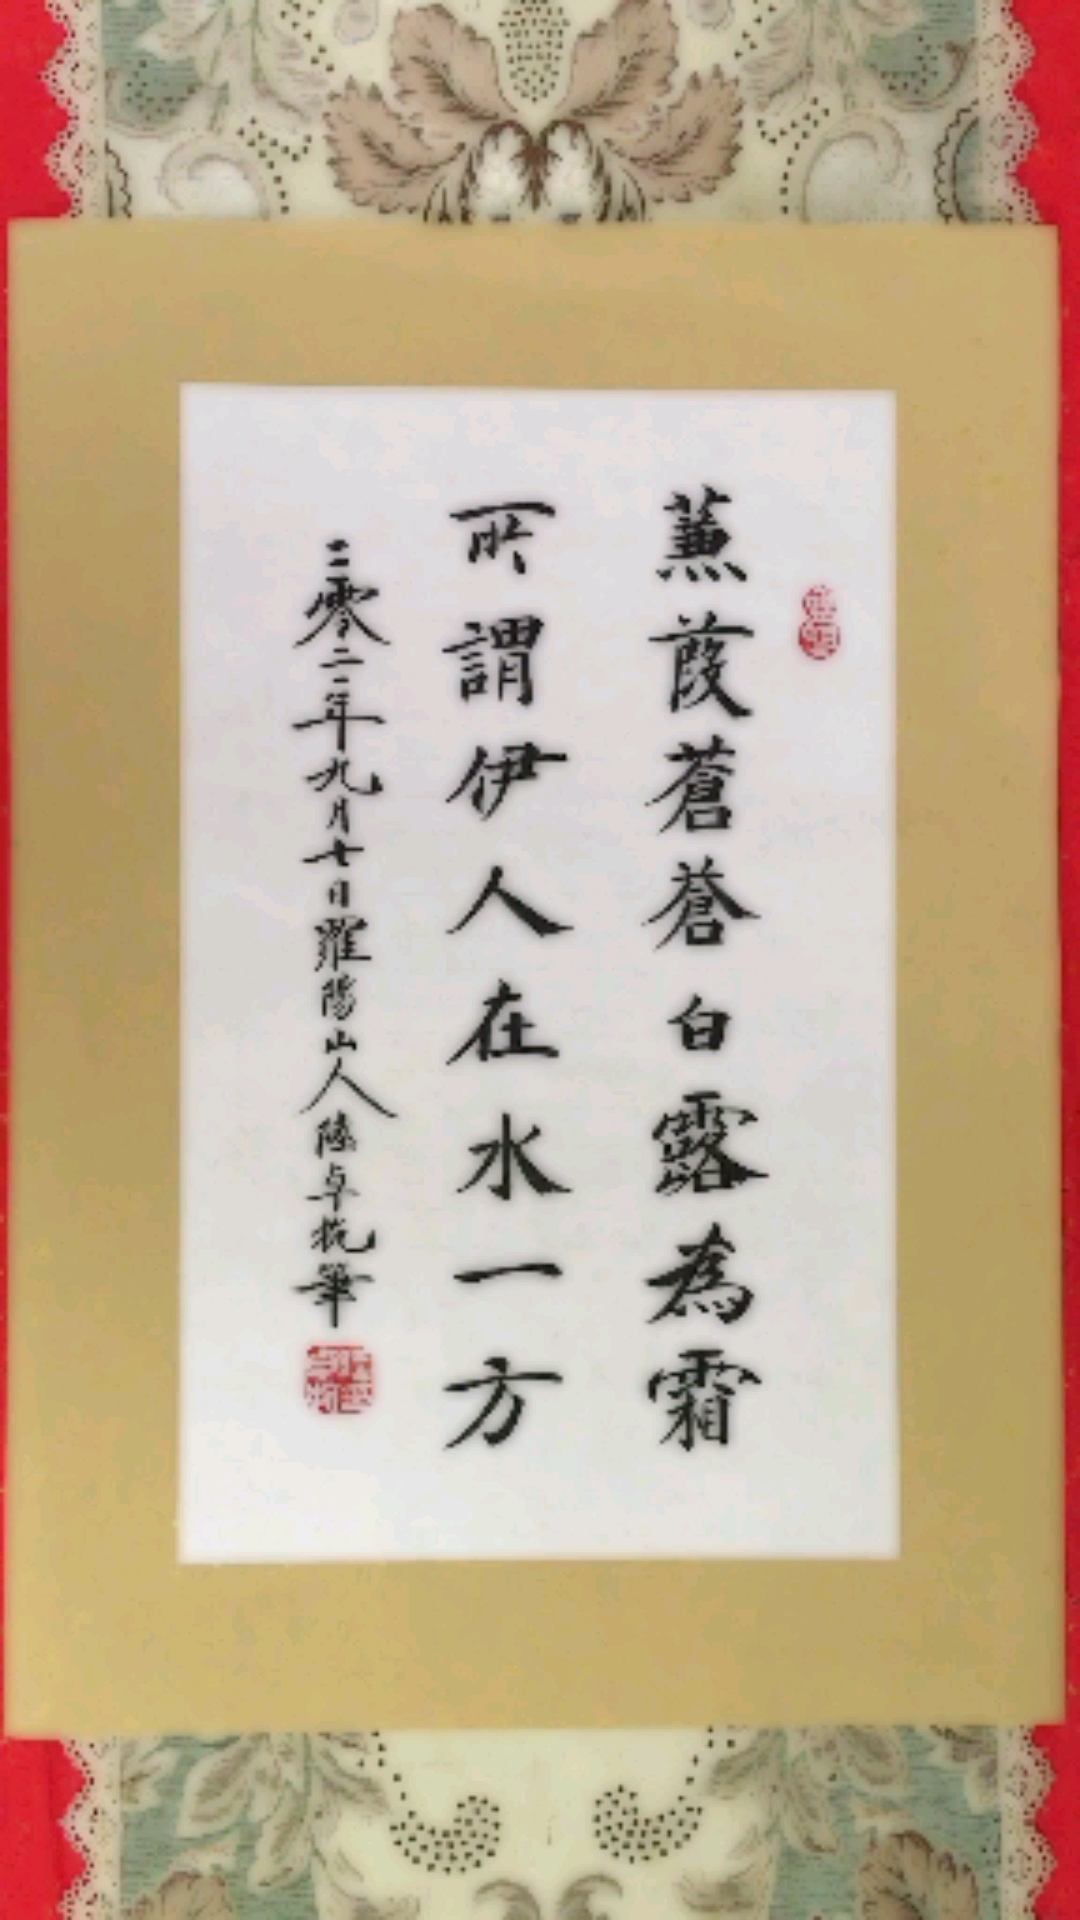 蒹葭蒼蒼白露為霜
所謂伊人在水一方
二零二一年九月七日羅陽山人陸卓㧪筆